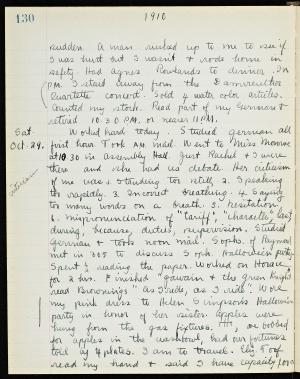 130
1910
sudden. A man rushed up to me to see if
I was hurt but I wasn't & rode home in
safety. Had Agnes Rowlands to dinner. In
P.M. I staid away from the Dannreuther
Quartette concert. Sold 4 water color articles.
Counted my stock. Read part of my German &
retired 10.30 P.M. or nearer 11 P.M.
Sat. Worked hard today. Studied German all
Oct. 29. first hour. Took A.M. mail. Went to Miss Monroe
at 10.30 in assembly Hall. Just Rachel & I were
there and she had us debate. Her criticism
of me was 1. Standing too still 2. Speaking
too rapidly. 3. Incorrect breathing. 4. Saying
too many words on a breath. 5. Hesitation.
6. Mispronunciation of "tariff", "character", last,
during, because, duties, supervision. Studied
German & took noon mail. Soph. of Raymond
met in 205 to discuss Soph. Hallowe'en party.
Spent reading the paper. Worked on Horace
for 2 hrs. Finished "Gawain & the Green Knight"
read Browning's "As I ride, as I ride". Wore
my pink dress to Helen Simpson's Hallowe'en
party in honor of her sister. Apples were
hung from the gas fixtures, we bobbed
for apples in the washbowl, had our fortunes
told by 4 plates. I am to travel.
read my hand & said I have capacity for a